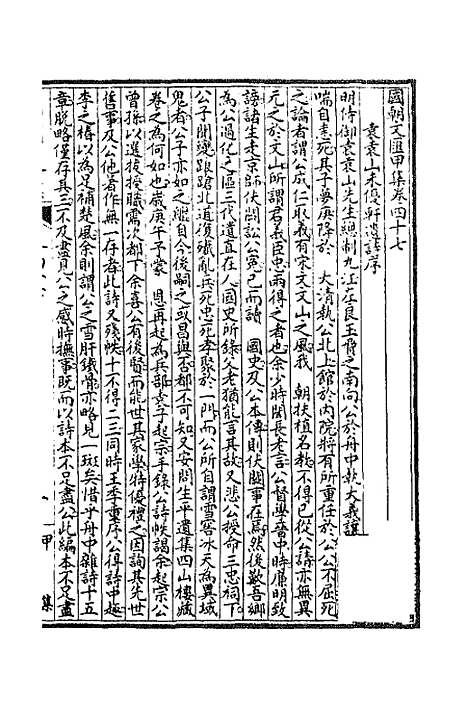 國朝文匯甲集卷四十七
袁袁山未優軒遺詩序
明侍御袁袁山先生總制九江左良玉脅之南向公於舟中執大義讓
喻自憲死其子夢庚降於 大清執公北上館於內院將有所重任於公公不屈死
之論者謂公成仁取義有宋文文山之風我 朝扶植名教不得已從公請亦無異
元之於文山所謂君義臣忠兩得之者也余少時聞長老言公督學晉中時廉明致
謗諸生走京師伏闕訟公冤已而讀 國史及公本傳則伏闕事在焉然後歎吾鄉
為公過化之區三代遺直在人國史所錄父老猶能言其故又悲公授命三忠祠下
公子聞變踉蹌北道復殲亂兵死忠死孝聚於一門而公所自謂雪窖冰天為異域
鬼者公子亦如之雖自今後嗣之或昌與否都不可知又安問生平遺集四山樓藏
卷之為何如也歲庚午子蒙 恩再起為兵部袁子起宗手錄公詩帙謁余起宗公
曾孫以選拔授職需次都下余喜公有後賢而能世其家學特優禮之因詢其先世
舊事及公他著作無一存者此詩又殘帙十不得二三同時王李重序公得詩中逸
李之椿以為足補楚風余則謂公之雪肝鐵骨亦略見一斑矣惜乎舟中雜詩十五
章脫略僅存其三不及盡見公之感時撫事既而以詩本不足盡公此編本不足盡
甲
集